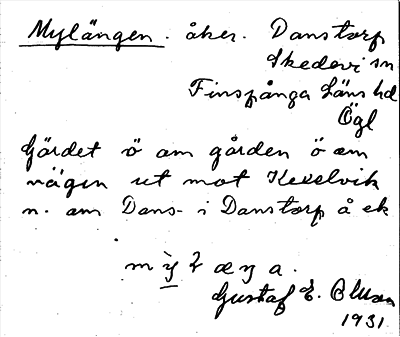 Mylängen. åker. Danstorp
Skedevi sn
Finspånga Läns hd
Ögl
Gärdet ö om gården ö om
vägen ut mot Keselvik
n. om Dans- i Danstorp å ek
Gustaf E. Olson
1931.